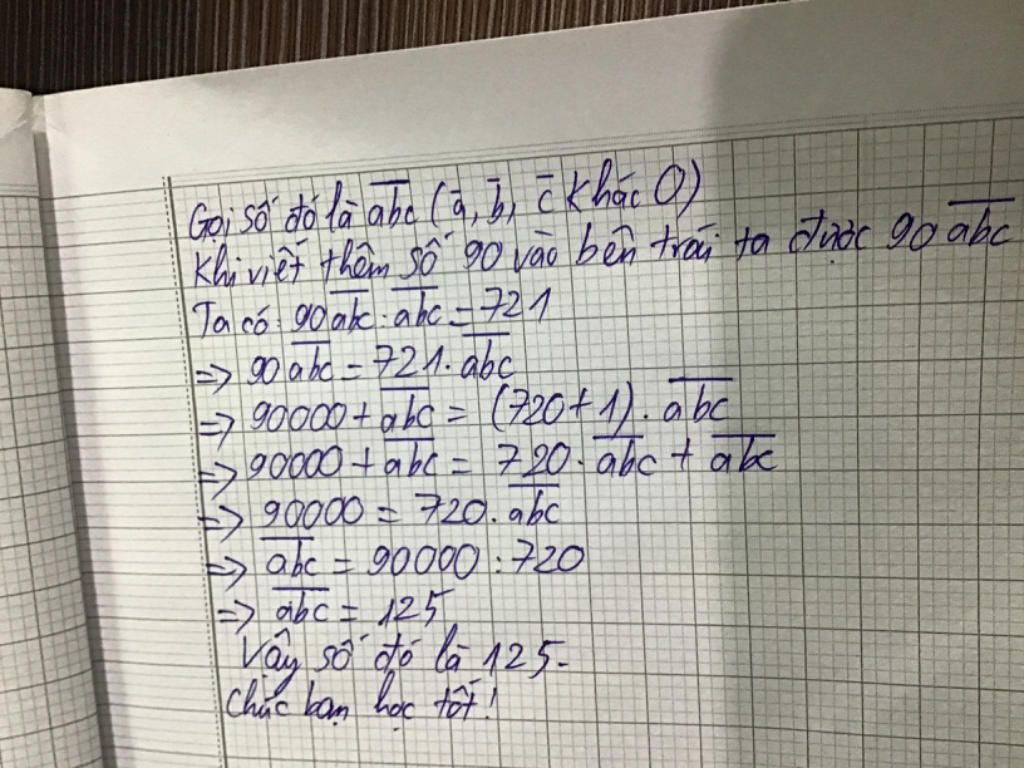 Gọi số đó là a̅b̅c̅ (a̅, b̅, c̅ khác 0)
Khi viết thêm số 90 vào bên trái ta được 90a̅b̅c̅
Ta có: 90a̅b̅c̅ : a̅b̅c̅ = 721
=> 90a̅b̅c̅ = 721. a̅b̅c̅
=> 90000 + a̅b̅c̅ = (720+1). a̅b̅c̅
=> 90000 + a̅b̅c̅ = 720. a̅b̅c̅ + a̅b̅c̅
=> 90000 = 720. a̅b̅c̅
=> a̅b̅c̅ = 90000 : 720
=> a̅b̅c̅ = 125
Vậy số đó là 125.
Chúc bạn học tốt!